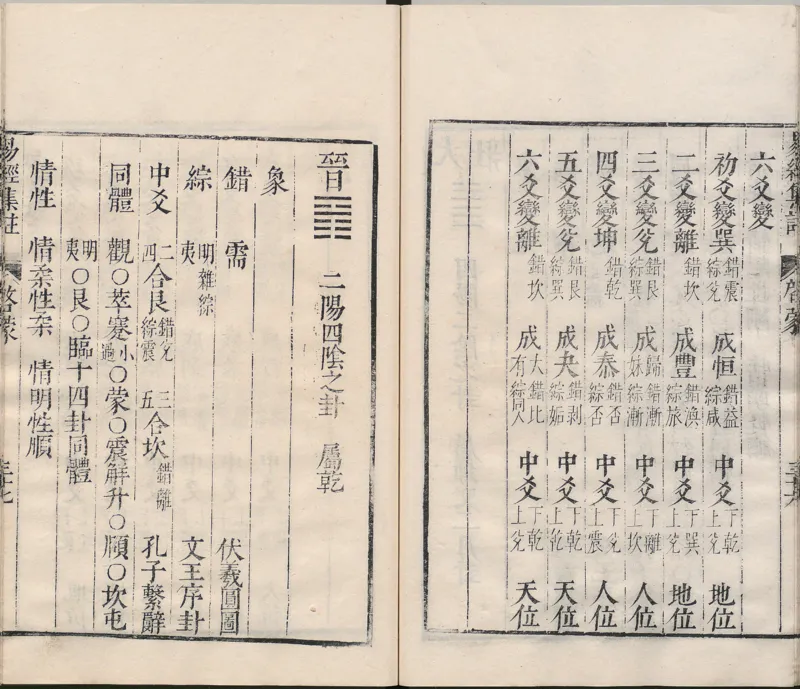 六爻變
初爻變巽 錯震綜兌 成恒 錯益綜咸 中爻 下乾上兌 地位
二爻變離 錯坎 成豐 錯渙綜旅 中爻 下巽上兌 地位
三爻變兌 錯艮綜巽 成歸妹 錯漸綜漸 中爻 下離上坎 人位
四爻變坤 錯乾 成泰 錯否綜否 中爻 下兌上震 人位
五爻變兌 錯艮綜巽 成夬 錯剝綜姤 中爻 下乾上乾 天位
六爻變離 錯坎 成大有 錯比綜同人 中爻 下乾上兌 天位
晉 ䷢ 二陽四陰之卦 屬乾
象
錯 需 伏羲圓圖
綜 明夷雜綜 文王序卦
中爻 二四合艮 錯兌綜震 三五合坎 錯離 孔子繫辭
同體 觀〇萃蹇小過〇蒙〇震解升〇頤〇坎屯
明夷〇艮〇臨十四卦同體
情性 情柔性柔 情明性順
易經集註 啓蒙 三十七